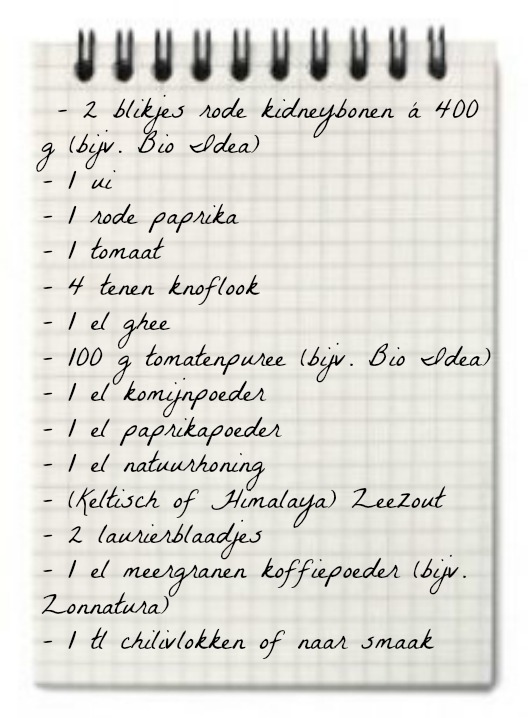 - 2 blikjes rode kidneybonen á 400
g (bijv. Bio Idea)
- 1 ui
- 1 rode paprika
- 1 tomaat
- 4 tenen knoflook
- 1 el ghee
- 100 g tomatenpuree (bijv. Bio Idea)
- 1 el komijnpoeder
- 1 el paprikapoeder
- 1 el natuurhoning
- (Keltisch of Himalaya) Zeezout
- 2 laurierblaadjes
- 1 el meergranen koffiepoeder (bijv.
Zonnatura)
- 1 tl chilivlokken of naar smaak